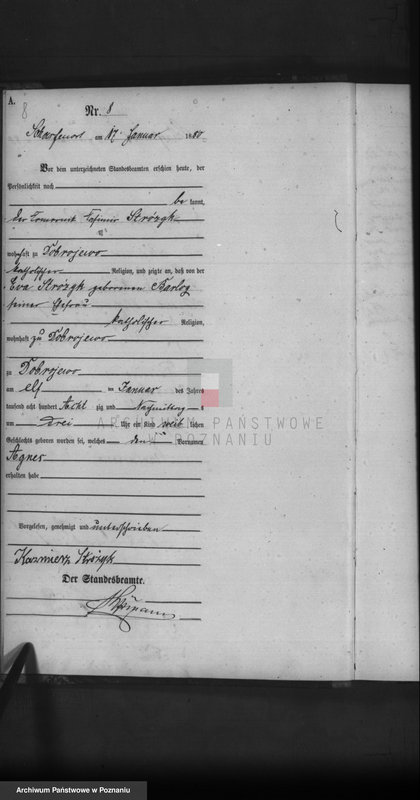 A.
8
Nr. 8
Scharfenort am 17. Januar 1880
Vor dem unterzeichneten Standesbeamten erschien heute, der
Persönlichkeit nach
be kannt,
der Casimir Strózyk
wohnhaft zu Dobrojewo
katholischer Religion, und zeigte an, daß von der
Eva Strozyk geborenen Barlog
seiner Ehefrau
katholischer Religion,
wohnhaft zu Dobrojewo
zu Dobrojewo
am elf ten Januar des Jahres
tausend acht hundert Acht zig und Nachmittag s
um Drei Uhr ein Kind weib lichen
Geschlechts geboren worden sei, welches den Vornamen
Agnes
erhalten habe
Vorgelesen, genehmigt und unterschrieben
Kazmierz Stróżyk
Der Standesbeamte.
ARCHIWUM PAŃSTWOWE
W POZNANIU
Archiwum Państwowe w Poznaniu